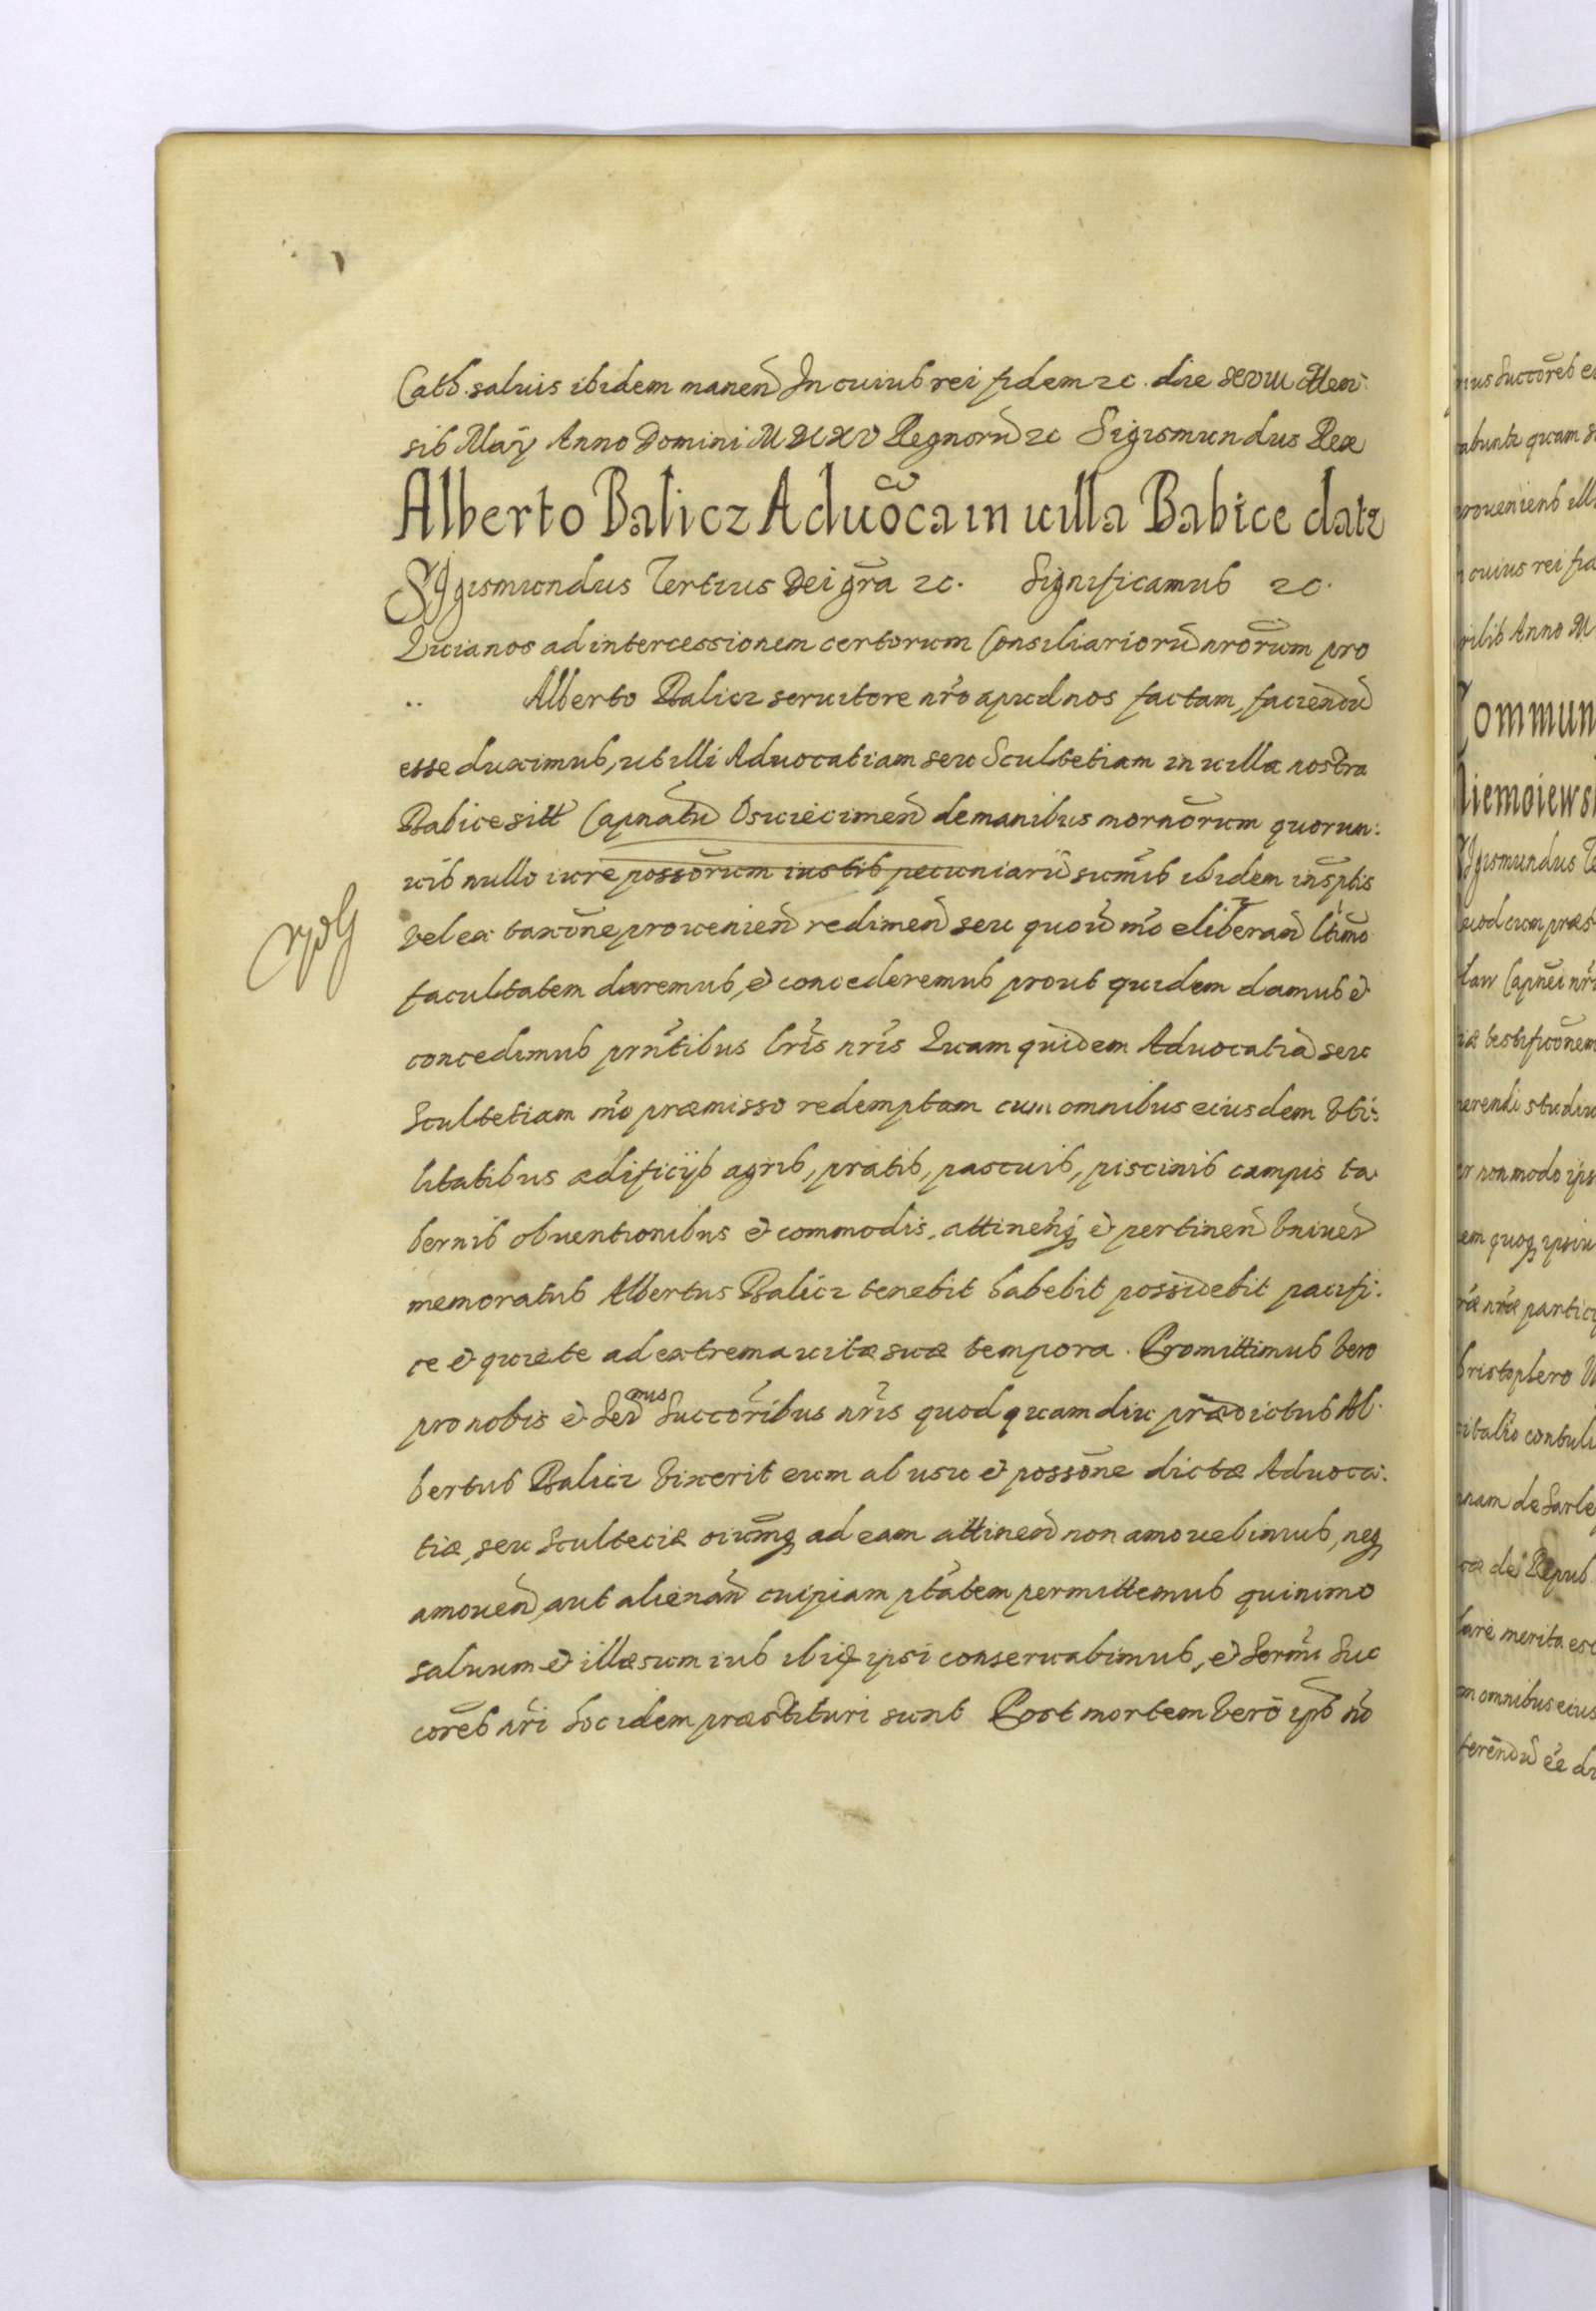 Cath. saluis ibidem manen̄ In cuius rei fidem ꝛc. die xxviii Men:
sis Maij Anno Domini MDCXV Regnorū ꝛc Sigismundus Rex
Alberto Balicz Aduōca in uilla Babice datr
SIgismundus Tertius Dei gr̄a ꝛc. Significamus ꝛc.
Quia nos ad intercessionem certorum Consiliariorū nrōrum pro
.. Alberto Balicz seruitore nr̄o apud nos factam, faciendū
esse duximus, ut illi Aduocatiam seu Scultetiam in uilla nostra
Babice sitt Capnatū Osuiecimen̄ de manibus mornōrum quorum:
uis nullo iure possōrum iustis pecuniarū sum̄is ibidem insptis
vel ex taxōne prouenien̄ redimen̄ seu quouis mō eliberan̄ ltimō
facultatem daremus, & concederemus prout quidem damus &
concedimus prn̄tibus lrīs nrīs Quam quidem Aduocatiā seu
Scultetiam mō præmisso redemptam cum omnibus eiusdem vti:
litatibus ædificijs agris, pratis, pascuis, piscinis campis ta
bernis obuentionibus & commodis, attinen̄q & pertinen̄ vniuer̄
memoratus Albertus Balicz tenebit habebit possidebit pacifi:
ce & quiete ad extrema uitæ suæ tempora. Promittimus vero
pro nobis & Ser̄mis Succōribus nrīs quod quamdiu prædictus Al:
bertus Balicz vixerit eum ab usu & possōne dictæ Aduoca:
tiæ, seu Scultetiæ oiumq ad eam attinen̄ non amouebimus, neq
amouen̄ aut alienan̄ cuipiam ptātem permittemus quinimo
saluum & illæsum ius ibiq ipsi conseruabimus, & Sermi Suc
cores nrī hoc idem præstituri sunt Post mortem verō ips nō